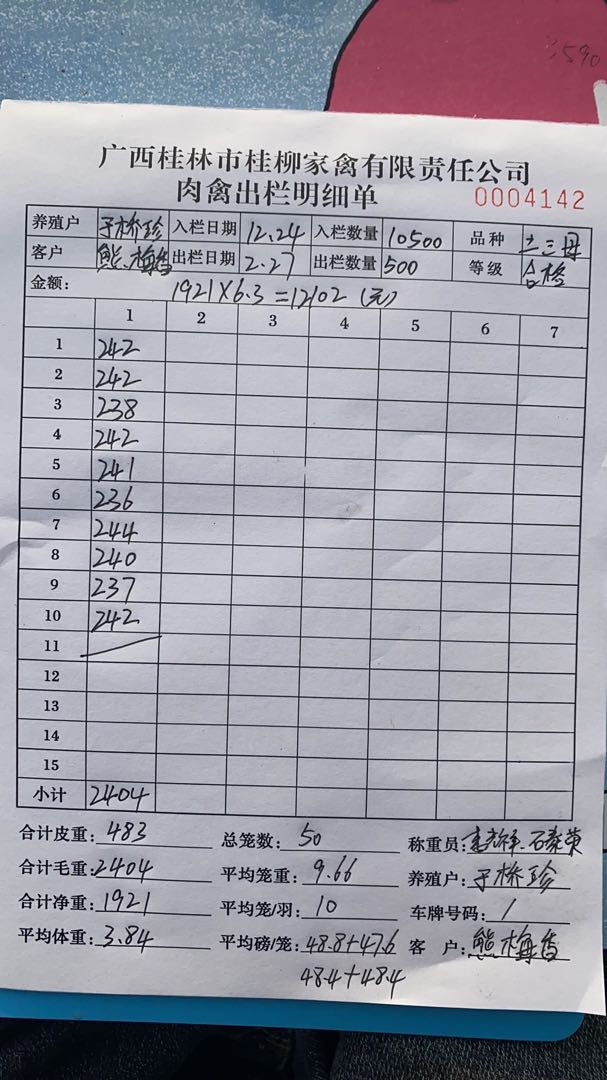 3590
广西桂林市桂柳家禽有限责任公司
肉禽出栏明细单 0004142
养殖户 于桥珍 入栏日期 12.24 入栏数量 10500 品种 土三母
客户 熊梅香 出栏日期 2.27 出栏数量 500 等级 合格
金额: 1921×6.3=12102(元)
1 2 3 4 5 6 7
1 242
2 242
3 238
4 242
5 241
6 236
7 244
8 240
9 237
10 242
11
12
13
14
15
小计 2404
合计皮重: 483 总笼数: 50 称重员: 石泰荣
合计毛重: 2404 平均笼重: 9.66 养殖户: 于桥珍
合计净重: 1921 平均笼/羽: 10 车牌号码: /
平均体重: 3.84 平均磅/笼: 48.8+47.6 客 户: 熊梅香
48.4+48.4